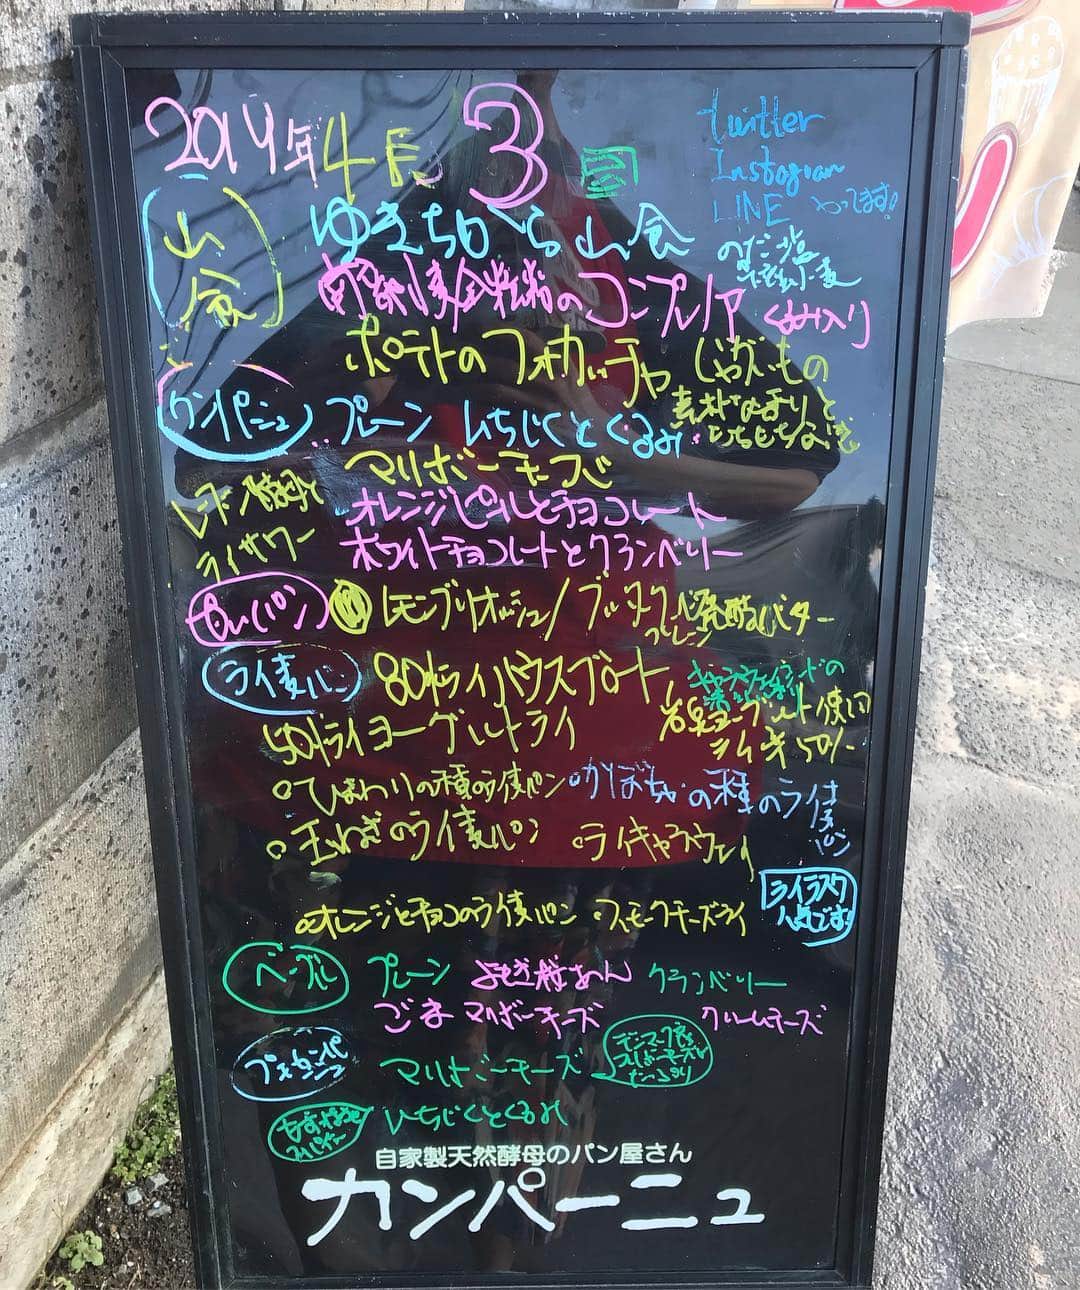 2019年4月3日
twitter
Instagram
LINE やってます!
山食
ゆきちから山食
のだ塩
南部小麦全粒粉のコンプレノア くるみ入り
ポテトのフォカッチャ じゃがいもの
素朴な香りと
もちもちな
カンパーニュ プレーン いちじくとくるみ
マリボーチーズ
レーズン酵母と
ライサワー
オレンジピールとチョコレート
ホワイトチョコレートとクランベリー
レモンブリオッシュ/ブール 発酵バター
ライ麦パン 80%ライハウスブロート
キャラウェイシードの
50%ライヨーグルトライ
岩泉ヨーグルト使い
ライ麦50%
ひまわりの種のライ麦パン かぼちゃの種のライ麦パン
玉ねぎのライ麦パン ライキャラウェイ
オレンジとチョコのライ麦パン スモークチーズライ
ライラスク
人気です!
ベーグル プレーン よもぎ桜あん クランベリー
ごま マリボーチーズ クリームチーズ
プチカンパーニュ マリボーチーズ
デンマーク産
マリボーチーズ
たっぷり
いちじくとくるみ
自家製天然酵母のパン屋さん
カンパーニュ